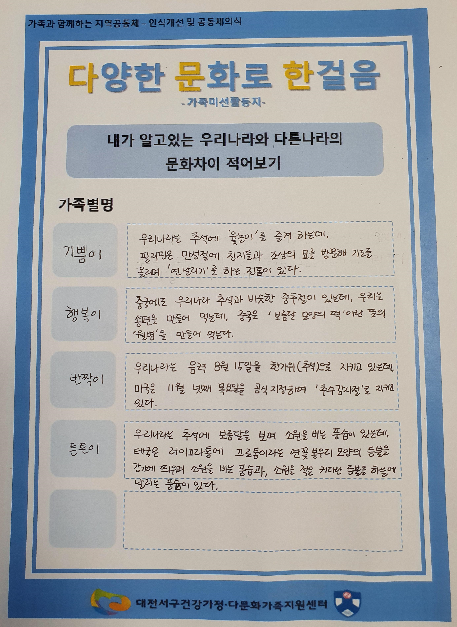 가족과 함께하는 지역공동체 - 인식개선 및 공동체의식
다양한 문화로 한걸음
-가족미션활동지-
내가 알고있는 우리나라와 다른나라의
문화차이 적어보기
가족별명
기쁨이
우리나라는 추석에 '윷놀이'를 즐겨 하는데,
필리핀은 만성절에 친지들과 조상의 묘를 방문해 기도를
올리며 '연날리기'를 하는 전통이 있다.
행복이
중국에도 우리나라 추석과 비슷한 중추절이 있는데, 우리는
송편을 만들어 먹는데, 중국은 '보름달 모양의 떡'이란 뜻의
'월병'을 만들어 먹는다.
반짝이
우리나라는 음력 8월 15일을 한가위(추석)으로 지키고 있는데,
미국은 11월 넷째 목요일을 공식 지정하여 '추수감사절'로 지키고
있다.
튼튼이
우리나라는 추석에 보름달을 보며 소원을 비는 풍습이 있는데,
태국은 러이끄라통에 끄라통이라는 연꽃 봉우리 모양의 등불을
강가에 띄우며 소원을 비는 풍습과, 소원을 적은 커다란 등불을 하늘에
날리는 풍습이 있다.
대전서구건강가정·다문화가족지원센터